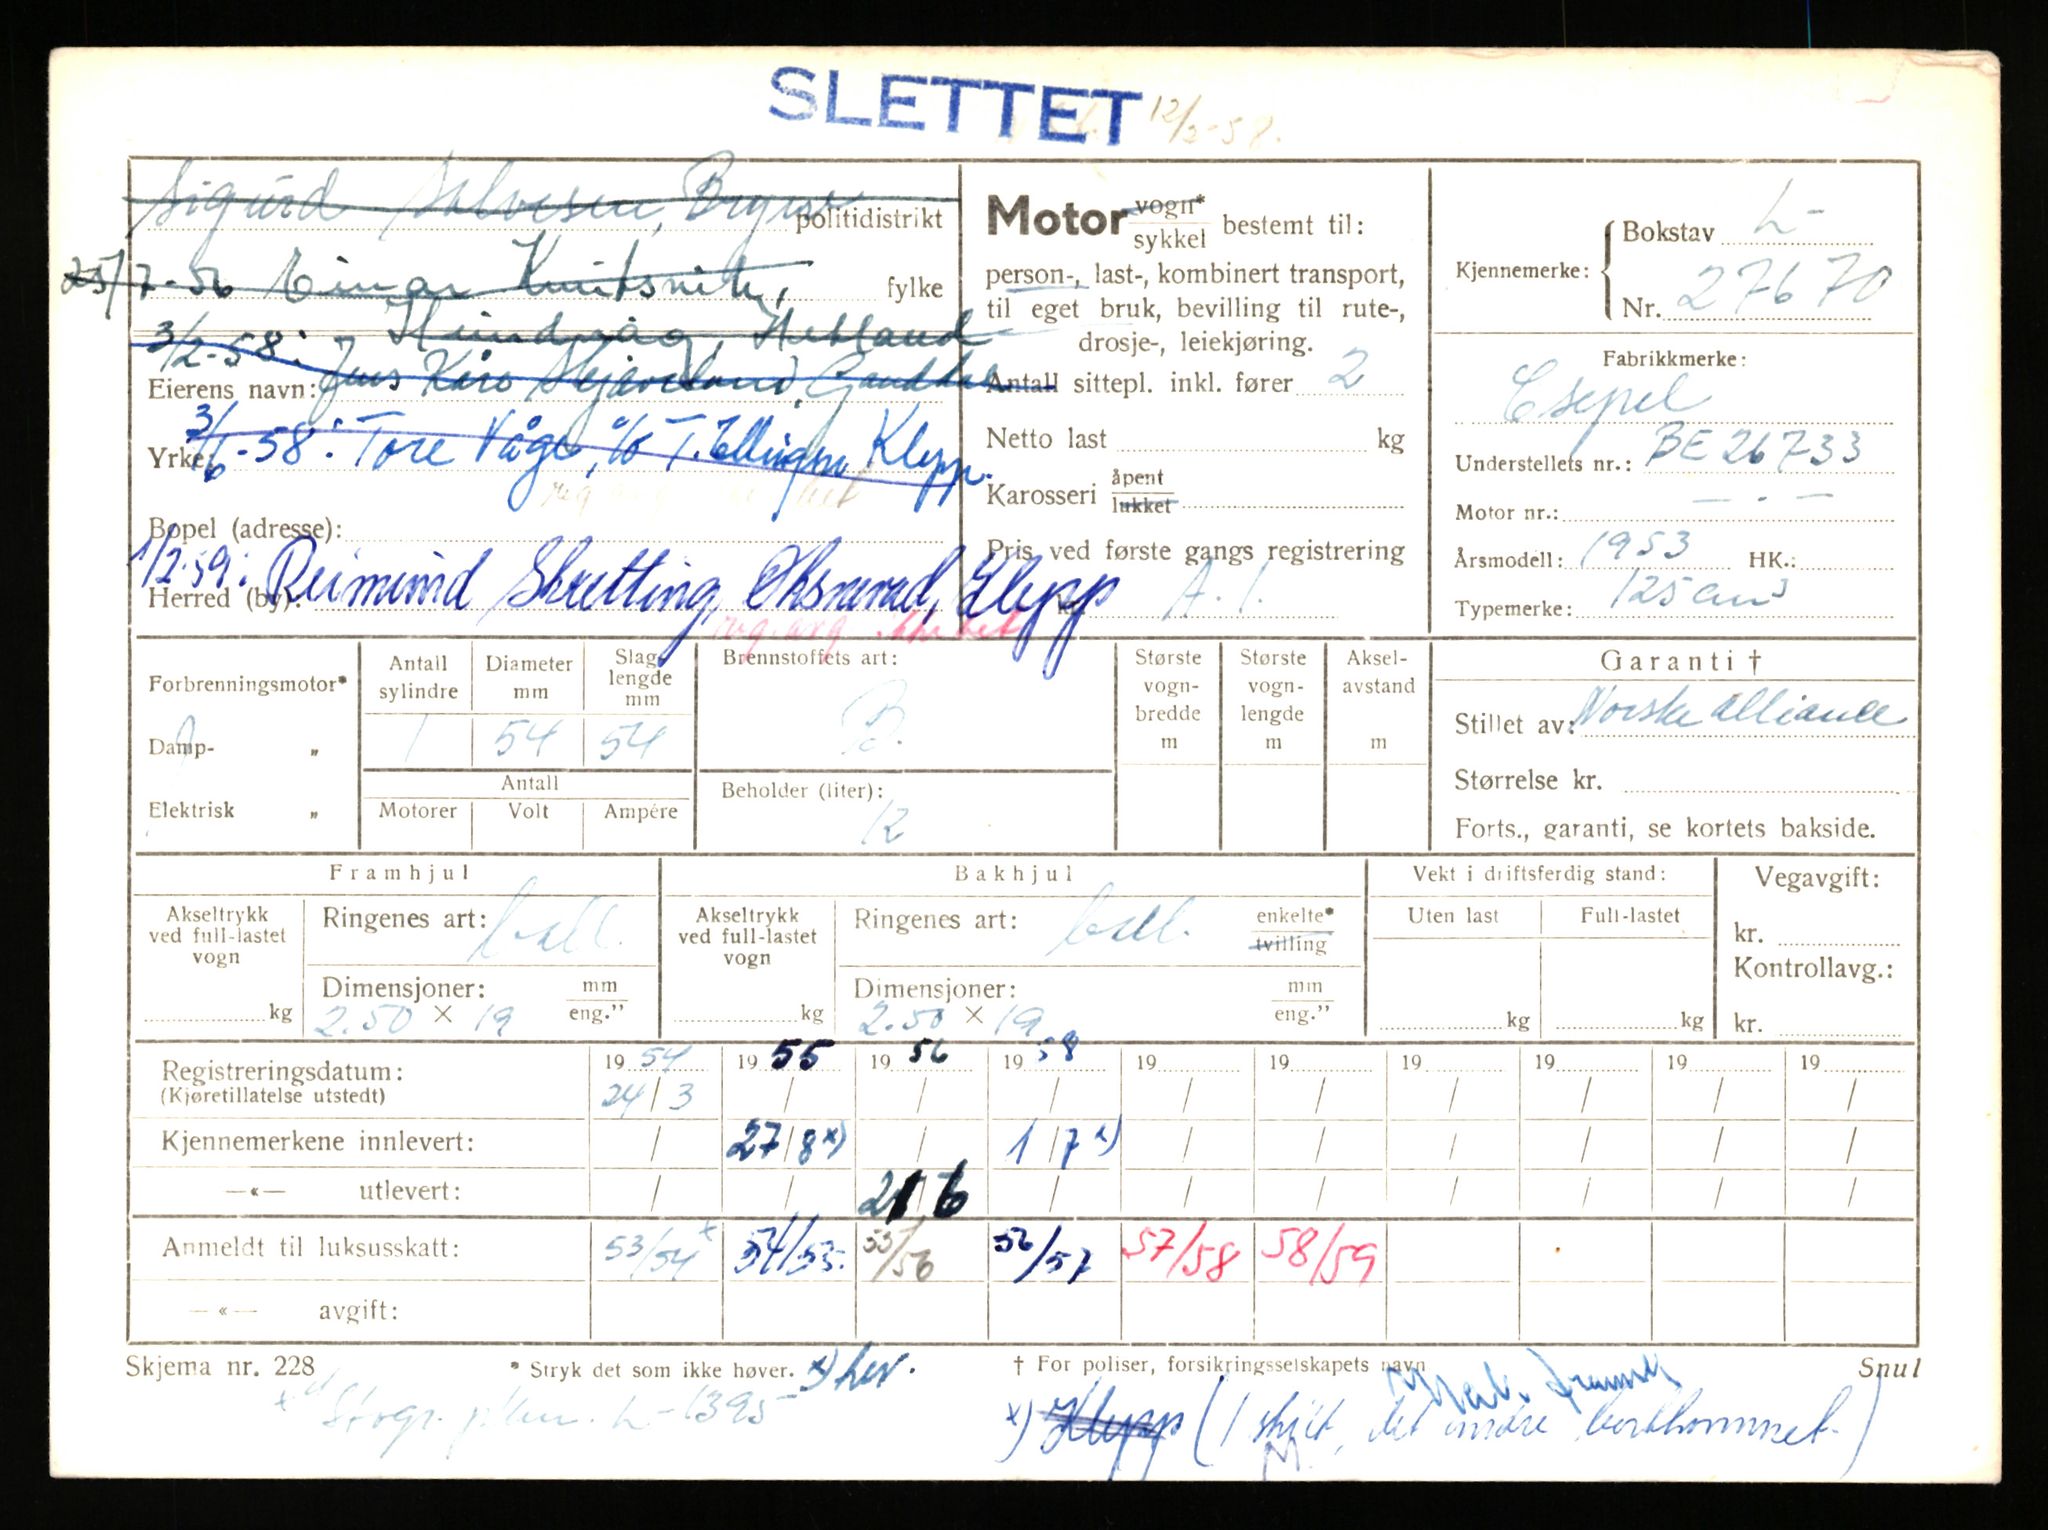 SLETTET 12/2-58.
Sigurd Salvesen, Bryne politidistrikt
25/7-56 Einar Knutsvik, fylke
Hundvåg, Hetland
3/2-58: Jens Kåre Skjæveland, Ganddal
Eierens navn:
3/6-58: Tore Våge, c/o T. Ellingsen, Klepp.
Yrke
Bopel (adresse):
1/2-59: Reimund Skretting, Øksnevad, Klepp
Herred (by):
reg.avg. ikke bet
Motor vogn* sykkel bestemt til:
person-, last-, kombinert transport,
til eget bruk, bevilling til rute-,
drosje-, leiekjøring.
Antall sittepl. inkl. fører 2
Netto last kg
Karosseri åpent lukket
Pris ved første gangs registrering
kr. A.1.
Kjennemerke: Bokstav L-
Nr. 27670
Fabrikkmerke:
Csepel
Understellets nr.: BE 26733
Motor nr.: — . —
Årsmodell: 1953 HK.:
Typemerke: 125 cm3
Forbrenningsmotor*
Damp- „
Elektrisk „
Antall sylindre 1
Diameter mm 54
Slaglengde mm 54
Antall
Motorer Volt Ampére
Brennstoffets art: B.
Beholder (liter): 12
Største vognbredde m
Største vognlengde m
Akselavstand m
Garanti †
Stillet av: Norske Alliance
Størrelse kr.
Forts., garanti, se kortets bakside.
Framhjul
Akseltrykk ved full-lastet vogn kg
Ringenes art: ball.
Dimensjoner: mm eng.”
2.50 × 19
Bakhjul
Akseltrykk ved full-lastet vogn kg
Ringenes art: ball. enkelte* tvilling
Dimensjoner: mm eng.”
2.50 × 19
Vekt i driftsferdig stand:
Uten last Full-lastet
kg kg
Vegavgift:
kr.
Kontrollavg.:
kr.
Registreringsdatum: 19 54 19 55 19 56 19 58 19 19 19 19 19 19
(Kjøretillatelse utstedt) 24/3 / / / / / / / / /
Kjennemerkene innlevert: / 27/8 x) / 1/7 x) / / / / / /
—«— utlevert: / / 21/6 / / / / / / /
Anmeldt til luksusskatt: 53/54 x 54/55 55/56 56/57 57/58 58/59
—«— avgift:
Skjema nr. 228 * Stryk det som ikke høver. x) Lev. † For poliser, forsikringsselskapets navn Snul
L-1395
x) Klepp (1 skilt, det andre bortkommet.)